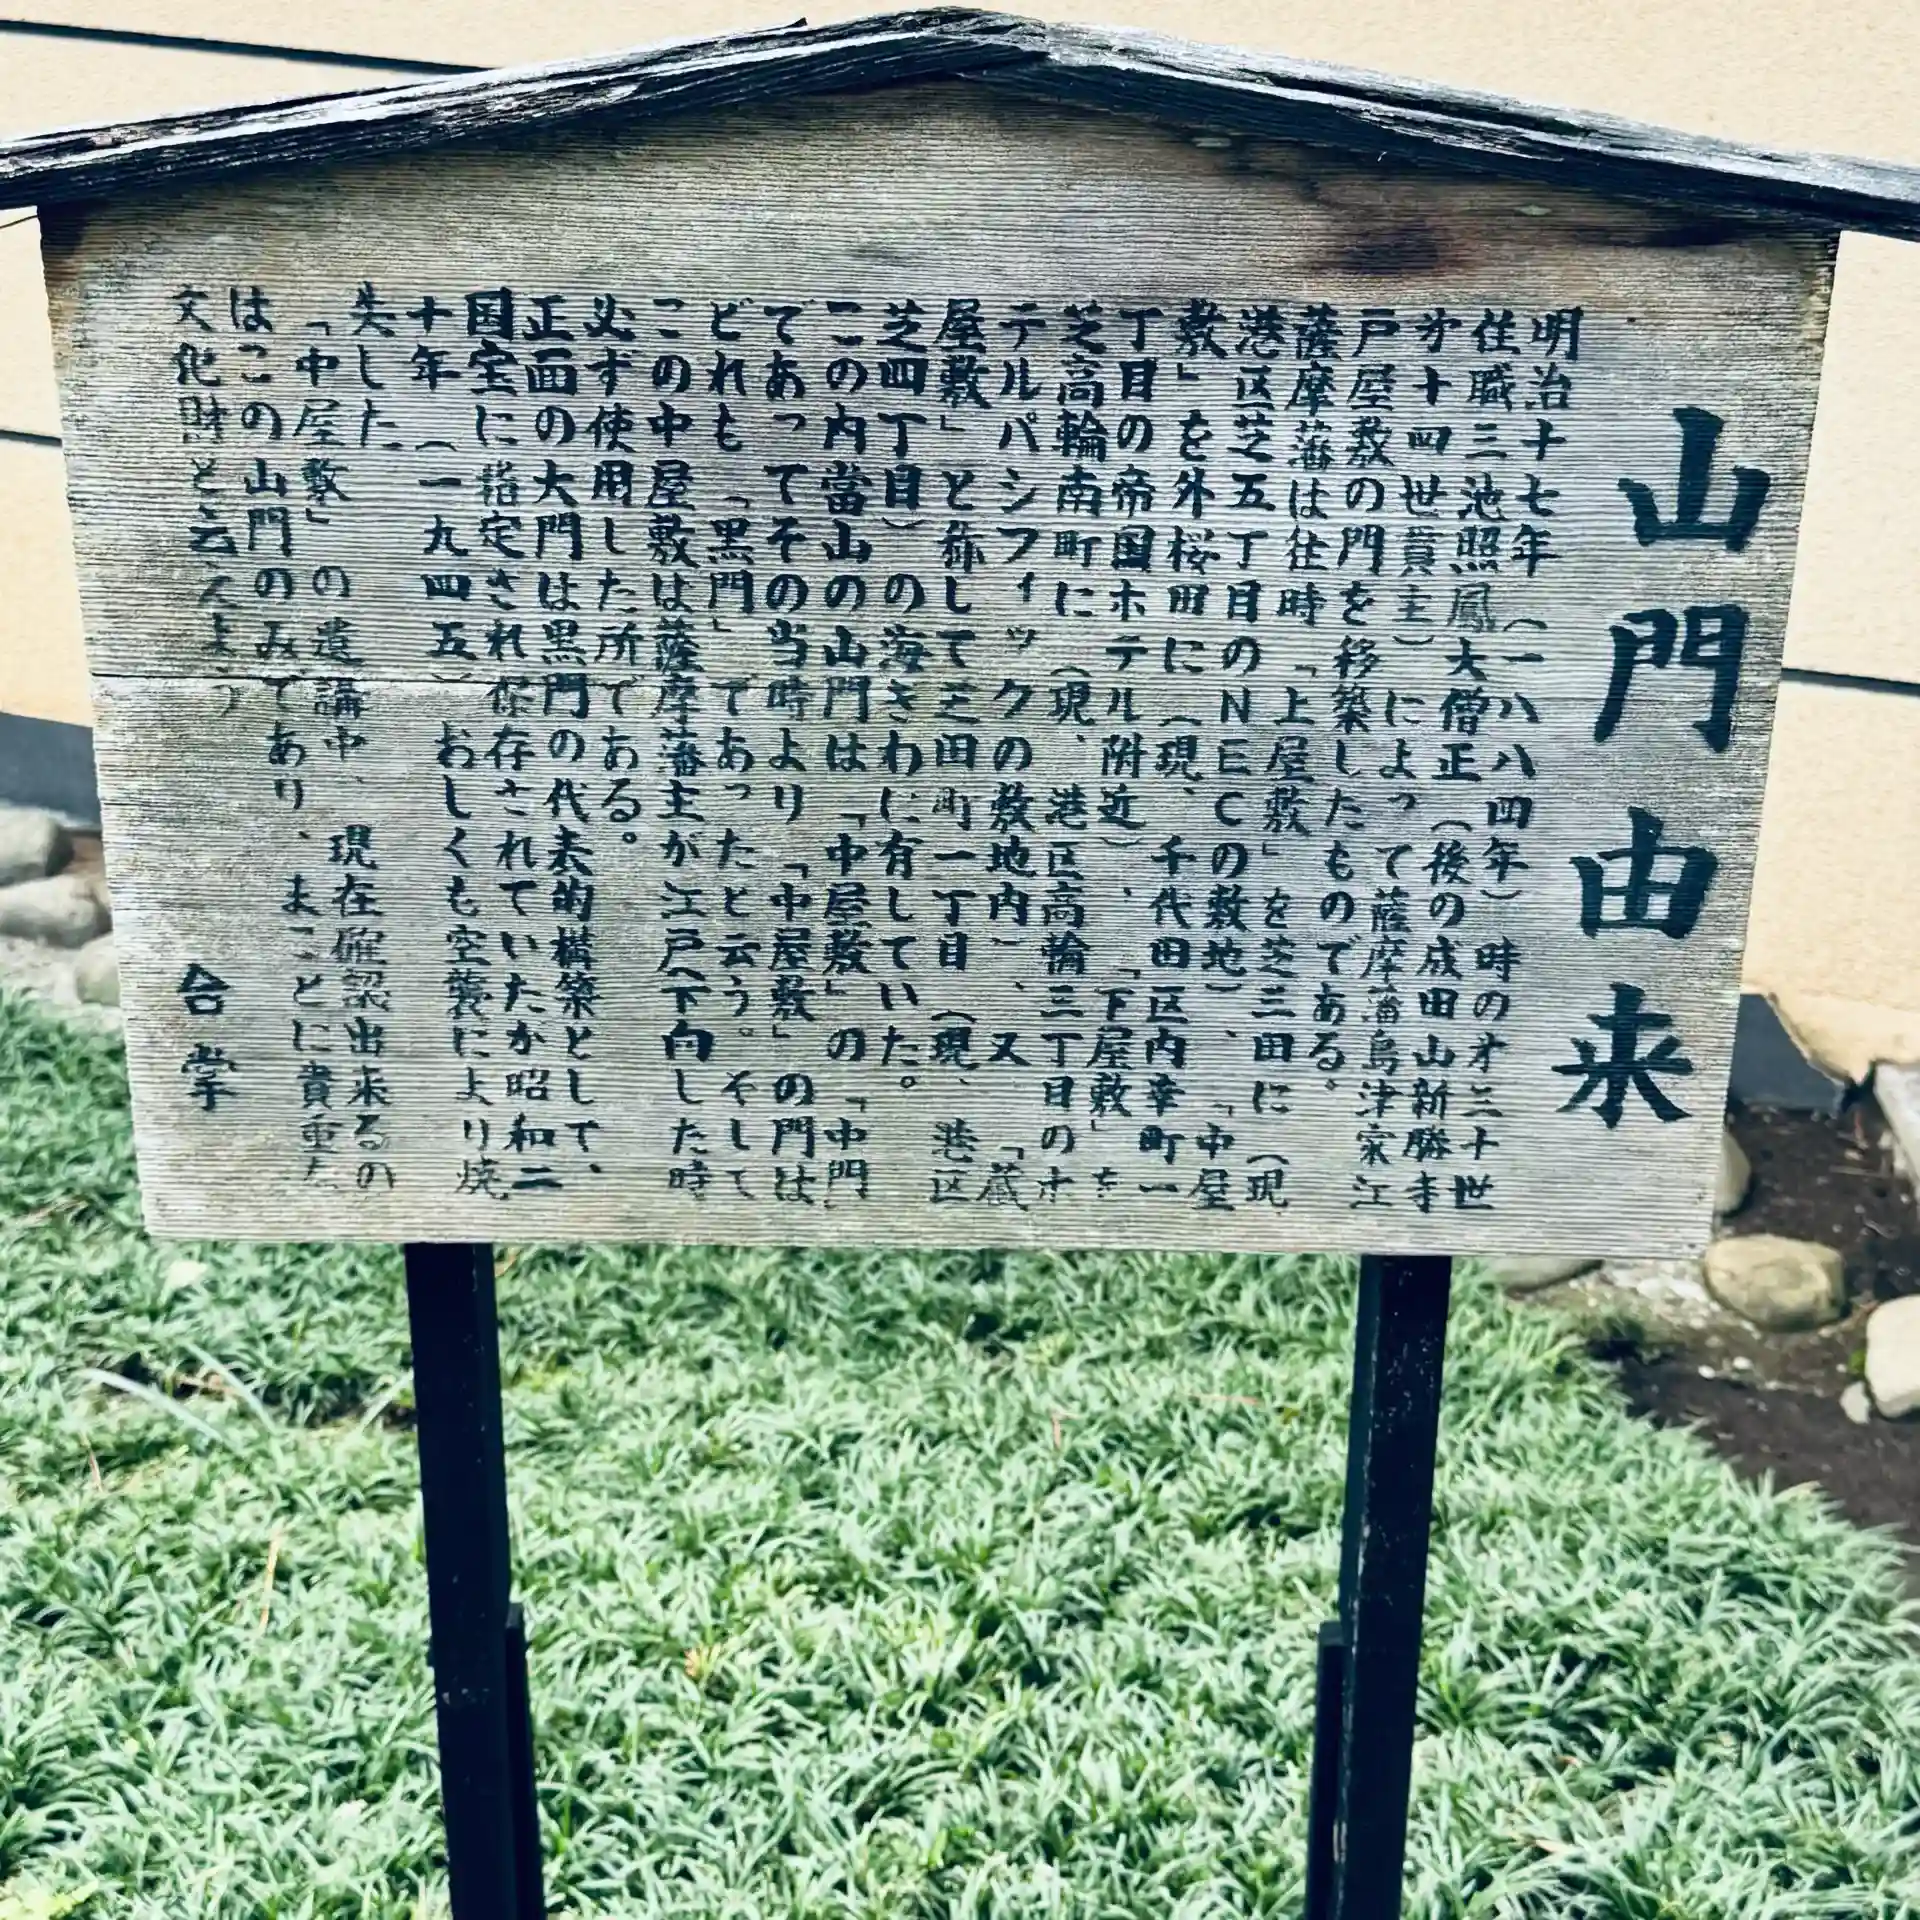 山門由来
明治十七年(一八八四年)時のオ三十世
住職三池照鳳大僧正(後の成田山新勝寺
オ十四世貫主)によって薩摩藩島津家江
戸屋敷の門を移築したものである。
薩摩藩は往時「上屋敷」を芝三田に(現、
港区芝五丁目のNECの敷地)、「中屋
敷」を外桜田に(現、千代田区内幸町一
丁目の帝国ホテル附近)、「下屋敷」を
芝高輪南町に(現、港区高輪三丁目のホ
テルパシフィックの敷地内)、又「蔵
屋敷」と称して芝田町一丁目(現、港区
芝四丁目)の海ぎわに有していた。
この内當山の山門は「中屋敷」の「中門」
であってその当時より「中屋敷」の門は
どれも「黒門」であったと云う。そして
この中屋敷は薩摩藩主が江戸へ下向した時
必ず使用した所である。
正面の大門は黒門の代表的構築として、
国宝に指定され保存されていたが昭和二
十年(一九四五)おしくも空襲により焼
失した。
「中屋敷」の遺講中、現在確認出来るの
はこの山門のみであり、まことに貴重な
文化財と云えよう
合掌